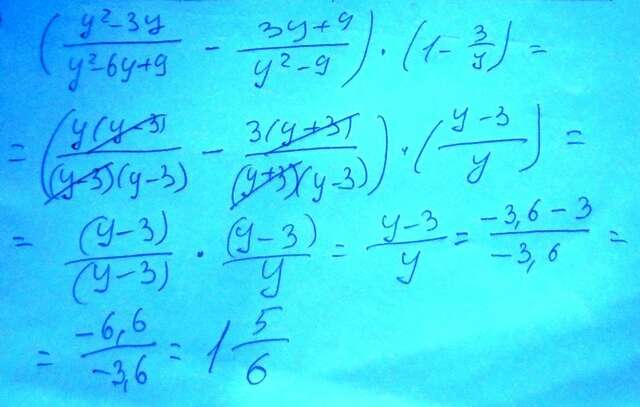 ( (y²-3y)/(y²-6y+9) - (3y+9)/(y²-9) ) · (1 - 3/y) =
= ( y(y-3)/((y-3)(y-3)) - 3(y+3)/((y+3)(y-3)) ) · ( (y-3)/y ) =
= (y-3)/(y-3) · (y-3)/y = (y-3)/y = (-3,6-3)/(-3,6) =
= (-6,6)/(-3,6) = 1 5/6